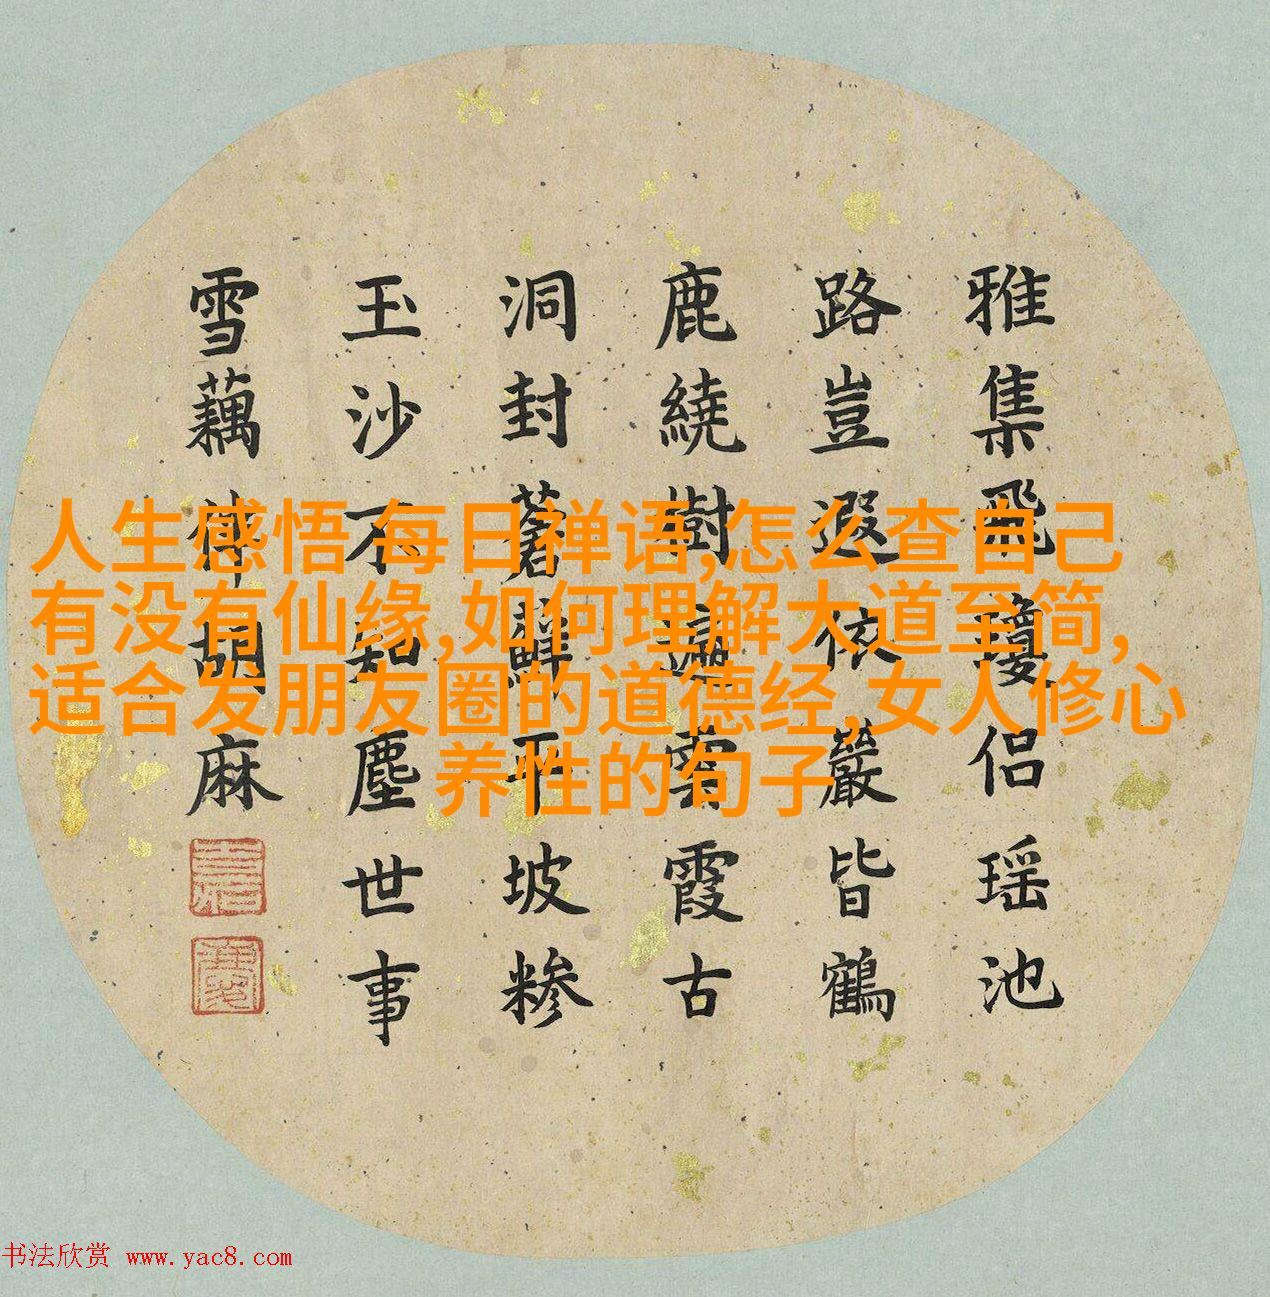 雅集飛瓊侶瑶池
路豈遐依巖皆鶴
鹿繞樹雲霞古
洞封蒼蘚平坡糝
玉沙不知塵世事
雪藕傳胡麻
人生感悟 每日禅语,怎么查自己
有没有仙缘,如何理解大道至简,
适合发朋友圈的道德经,女人修心
养性的句子
书法欣赏 www.yac8.com